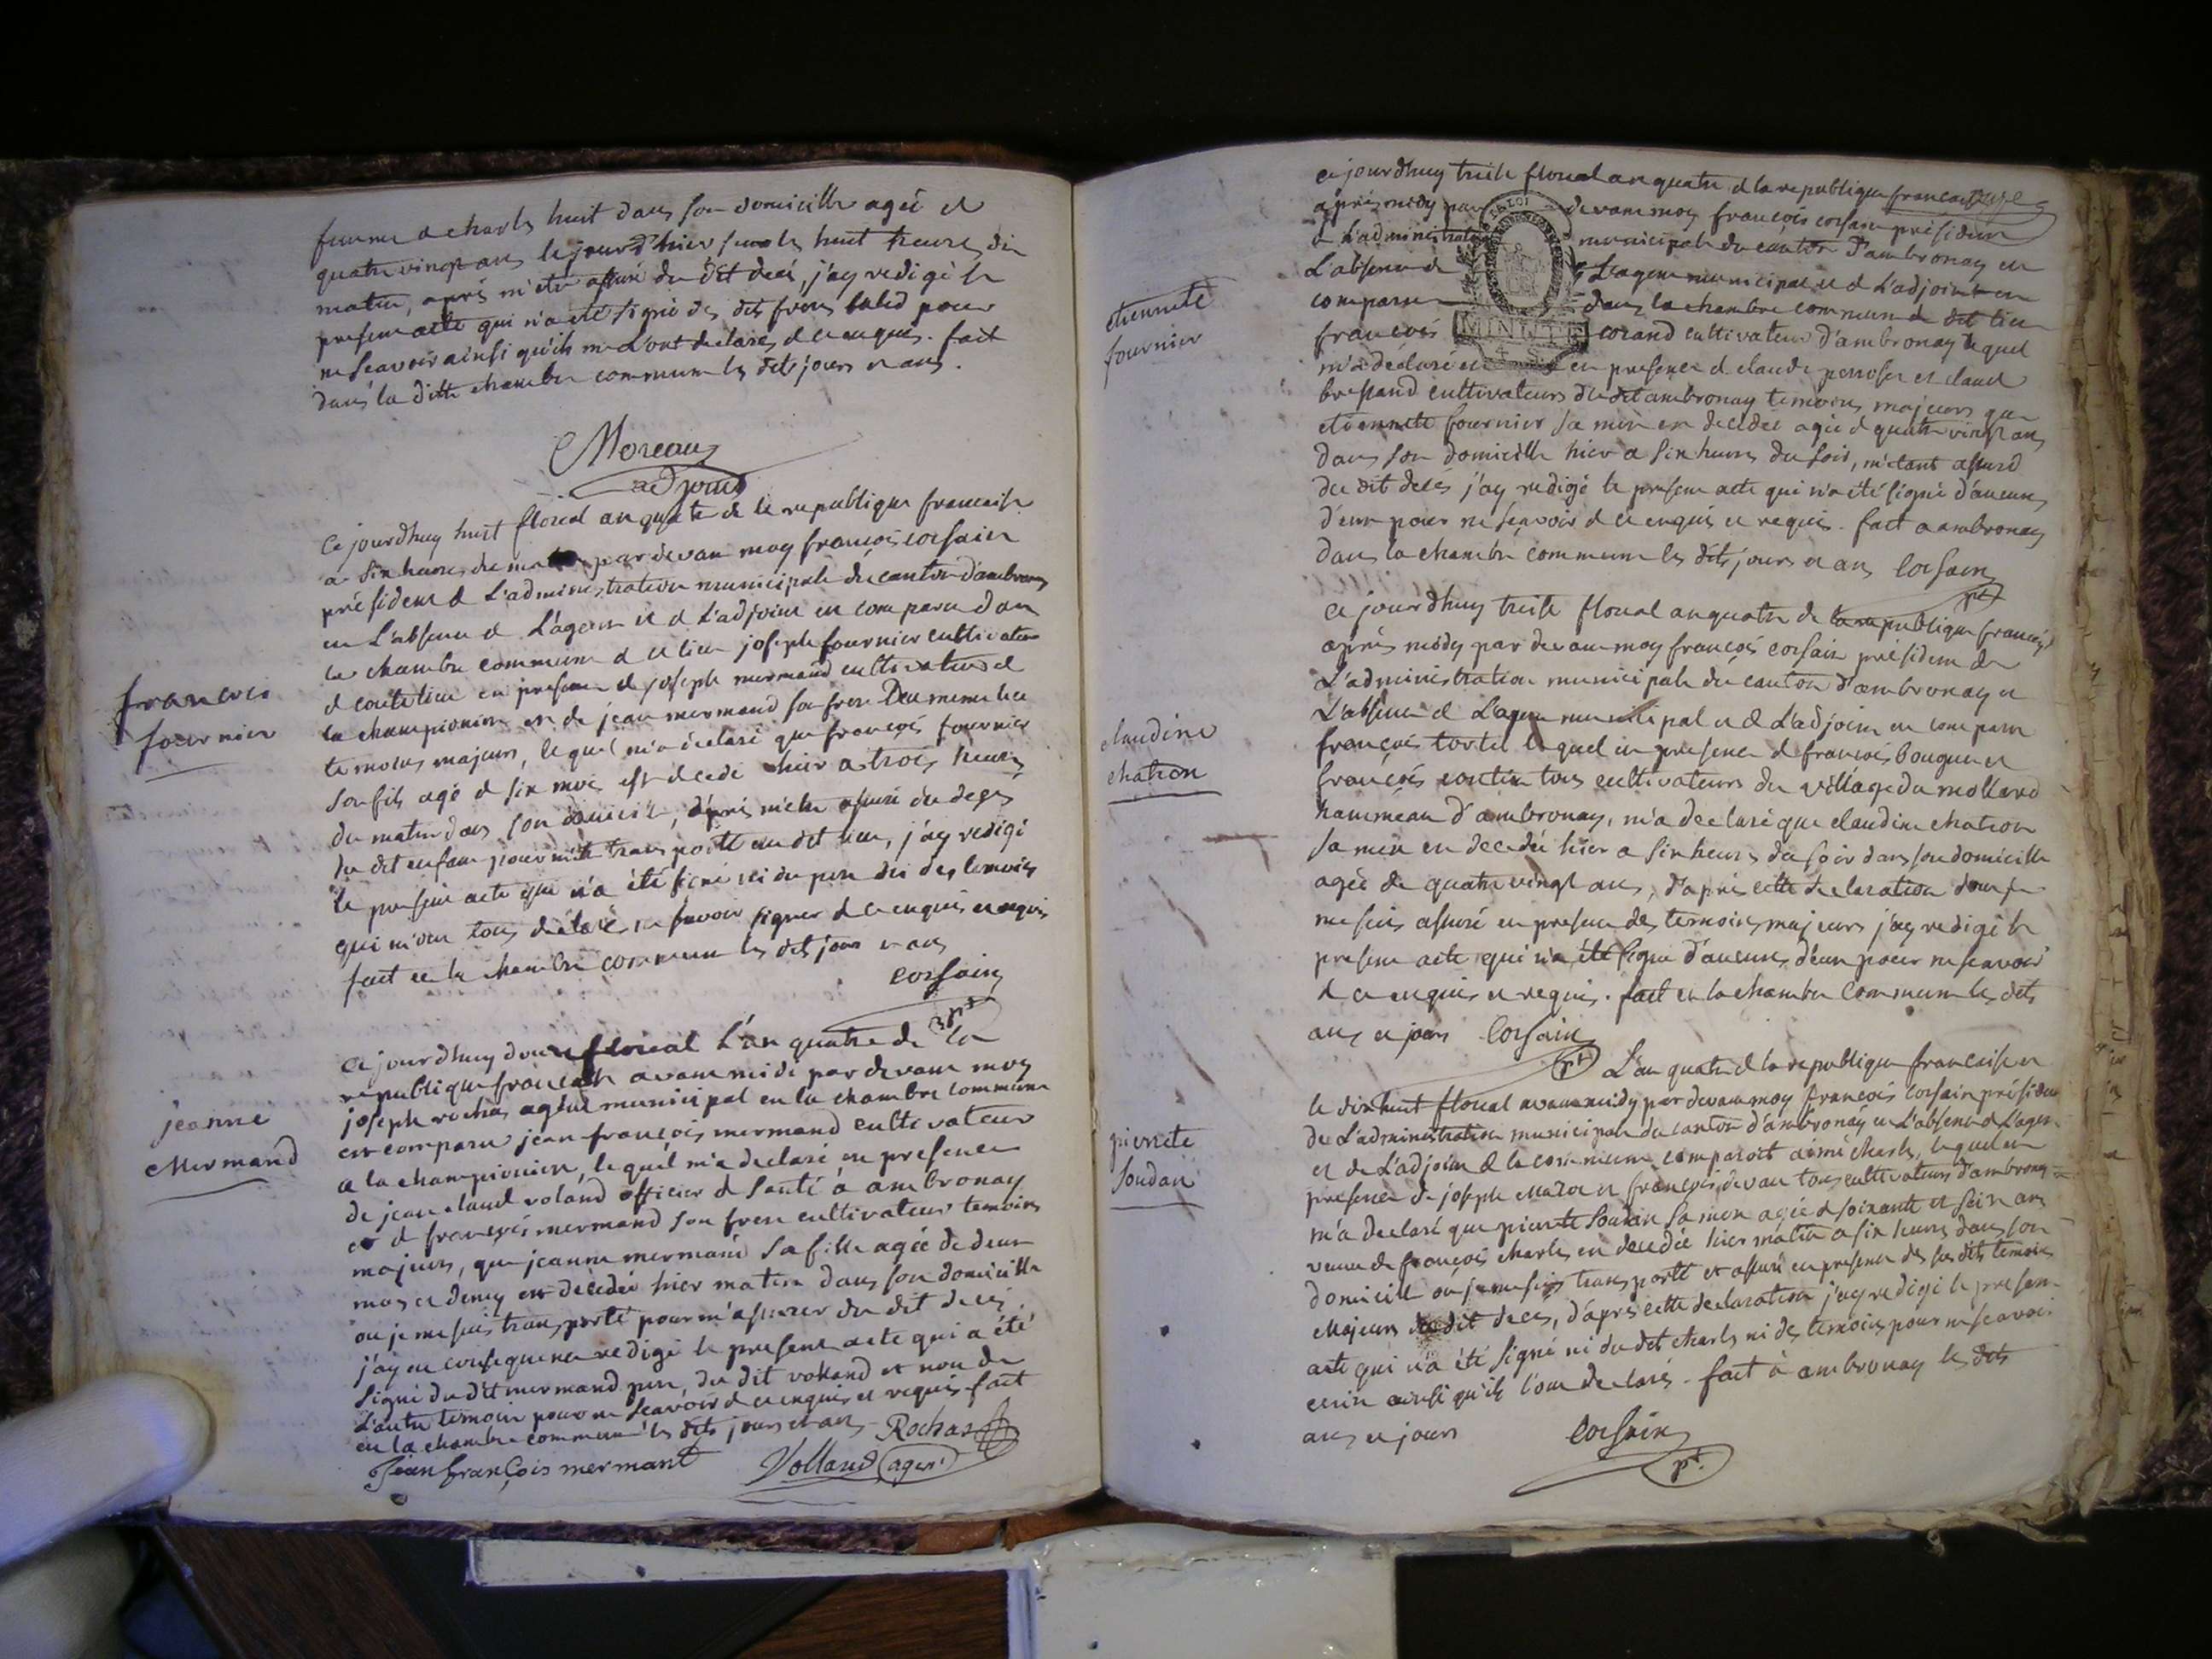 femme a charles huit dans son domicille agée de
quatre vingt ans le jour d'hier sur les huit heures du
matin, après m'etre assuré du dit decé, j'ay redigé le
present acte qui n'a eté signé des dits frere pour
ne scavoir ainsi qu'ils me l'ont declarés de ce enquis. fait
dans la ditte chambre commune les dits jours et ans.
Moreau
adjoint
Ce jourdhuy huit floreal an quatre de la republique francaise
a six heures du matin par devant moy françois corsain
président de L'administration municipale du canton d'ambronay
en L'absence de L'agent et de L'adjoint est comparu dans
la chambre commune de ce lieu joseph fournier cultivateur
de ce lieu en presence de joseph mermand cultivateur de
la championiere et de jean mermand son frere du meme lieu
temoins majeurs, lequel m'a déclaré que françois fournier
son fils agé de six mois est decedé hier a trois heures
du matin dans son domicile, d'après m'etre assuré du deces
du dit enfant pour m'etre transporté au dit lieu, j'ay redigé
le present acte qui n'a été signé ni du pere ni des temoins
qui m'ont tous déclarés ne savoir signer de ce enquis et requis
fait en la chambre commune les dits jour et an
corsain
pt
françois
fournier
Ce jourdhuy douze floreal L'an quatre de la
republique française avant midi par devant moy
joseph rochas agent municipal en la chambre commune
est comparu jean françois mermand cultivateur
a la championiere, lequel m'a declaré en presence
de jean claud voland officier de santé à ambronay
et de françois mermand son frere cultivateur temoins
majeurs, que jeanne mermand sa fille agée de deux
mois et demy est decedée hier matin dans son domicille
ou je me suis transporté pour m'assurer du dit deces
j'ay en consequence redigé le present acte qui a été
signé du dit mermand pere, du dit volland et non de
L'autre temoin pour ne scavoir de ce enquis et requis fait
en la chambre commune les dits jours et an Rochas
Jean françois mermant Volland agent
jeanne
Mermand
ce jourdhuy treise floreal an quatre de la republique francaise
après midy par devant moy françois corsain président
de L'administration municipale du canton d'ambronay en
L'absence de L'agent municipal et de L'adjoint est
comparu dans la chambre commune du dit lieu
françois corand cultivateur d'ambronay lequel
m'a déclaré en presence de claude et claud
bressand cultivateurs du dit ambronay temoins majeurs que
etiennette fournier sa mere est decedée agée de quatre vingt ans
dans son domicille hier a six heures du soir, m'etant assuré
du dit decés j'ay redigé le present acte qui n'a été signé d'aucuns
d'eux pour ne sçavoir de ce enquis et requis. fait a ambronay
dans la chambre commune les dits jours et an Corsain
pt
etiennete
fournier
LA LOI
MINUTE
ce jourdhuy treise floreal an quatre de la republique française
après midy par devant moy françois corsain president de
L'administration municipale du canton d'ambronay en
L'absence de L'agent municipal et de L'adjoint est comparu
françois tortel lequel en presence de françois bouguet et
françois contin tous cultivateurs du village du mollard
hamméau d'ambronay, m'a declaré que claudine chatron
sa mere est decedée hier a six heures du soir dans son domicille
agée de quatre vingt ans, d'après cette declaration dont je
me suis assuré en presence des temoins majeurs j'ay redigé le
present acte qui n'a été signé d'aucuns d'eux pour ne scavoir
de ce enquis et requis. fait en la chambre commune les dits
ans et jours Corsain
pt
claudine
chatron
L'an quatre de la republique francaise et
le dix huit floreal avant midy par devant moy françois corsain président
de L'administration municipale du canton d'ambronay en L'absence de L'agent
et de L'adjoint de la commune comparoit aimé charles, lequel en
presence de joseph Mazor et françois devau tous cultivateurs d'ambronay
m'a declaré que pierrete Soudan sa mere agée de soixante et seize ans
veuve de françois charles est decedée hier matin a six heures dans son
domicille ou je me suis transporté et assuré en presence des sus dits temoins
Majeurs du dit deces, d'après cette declaration j'ay redigé le present
acte qui n'a été signé ni du dit charles ni des temoins pour ne scavoir
ecrire ainsi qu'ils l'ont declarés. fait à ambronay les dits
ans et jours Corsain
pt.
pierrete
Soudan